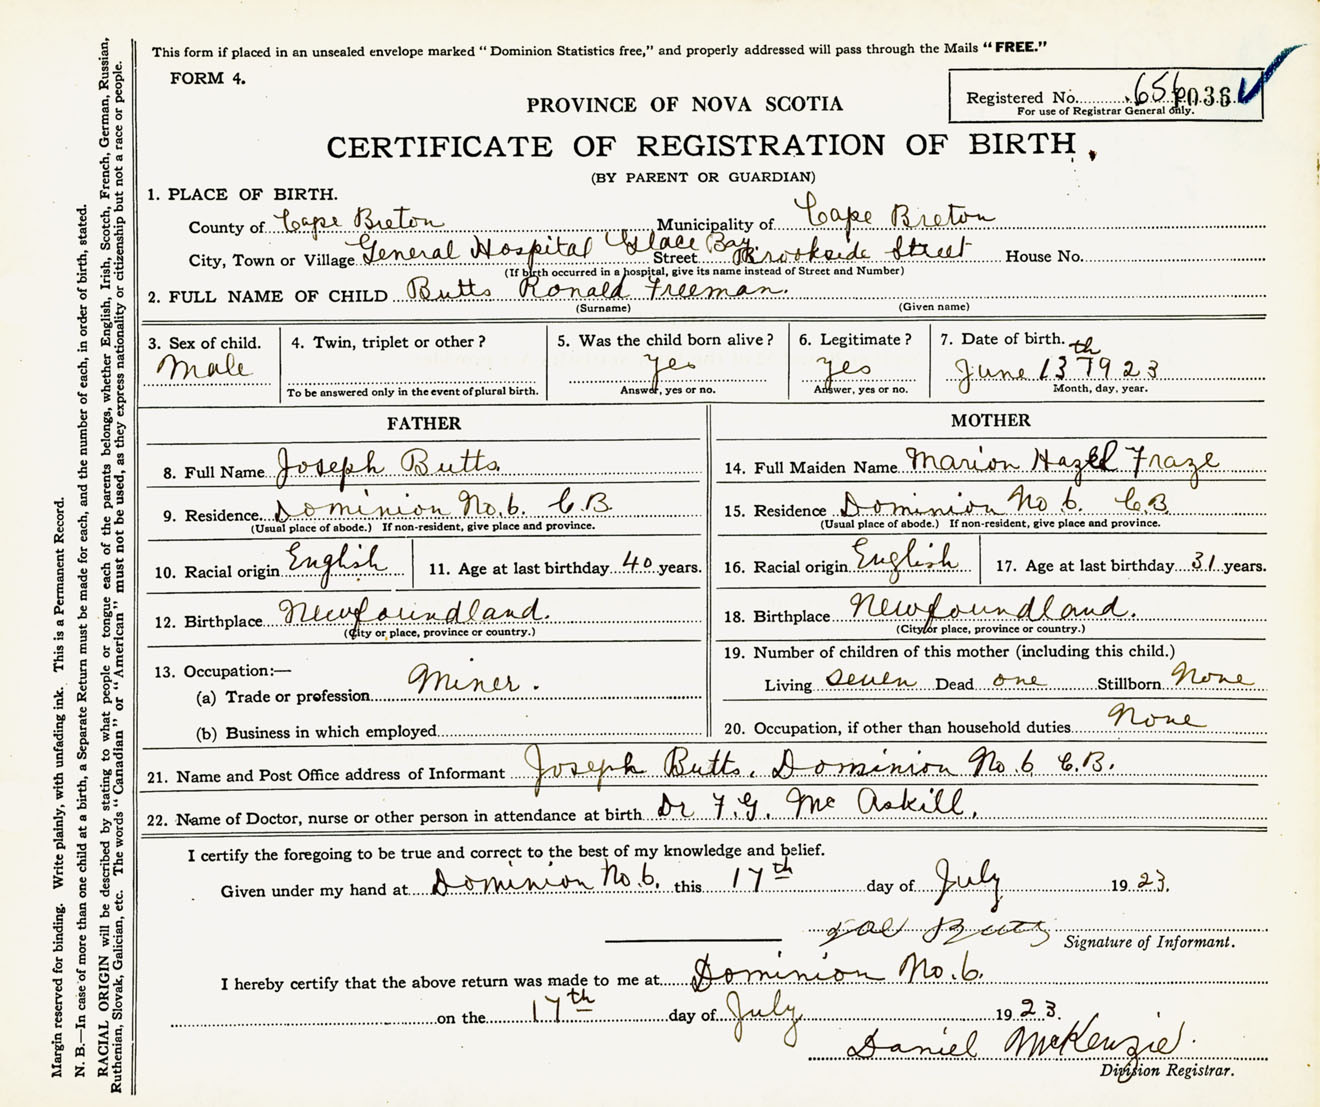 This form if placed in an unsealed envelope marked "Dominion Statistics free," and properly addressed will pass through the Mails "FREE."
FORM 4.
Registered No. 656 036
For use of Registrar General only.
PROVINCE OF NOVA SCOTIA
CERTIFICATE OF REGISTRATION OF BIRTH
(BY PARENT OR GUARDIAN)
1. PLACE OF BIRTH.
County of Cape Breton Municipality of Cape Breton
City, Town or Village General Hospital Glace Bay. Street Brookside Street House No.
(If birth occurred in a hospital, give its name instead of Street and Number)
2. FULL NAME OF CHILD Butts Ronald Freeman.
(Surname) (Given name)
3. Sex of child. 4. Twin, triplet or other? 5. Was the child born alive? 6. Legitimate? 7. Date of birth.
Male Yes Yes June 13th 1923
To be answered only in the event of plural birth. Answer, yes or no. Answer, yes or no. Month, day, year.
FATHER
8. Full Name Joseph Butts
9. Residence. Dominion No. 6. C.B.
(Usual place of abode.) If non-resident, give place and province.
10. Racial origin English 11. Age at last birthday 40 years.
12. Birthplace Newfoundland.
(City or place, province or country.)
13. Occupation:—
(a) Trade or profession Miner.
(b) Business in which employed
MOTHER
14. Full Maiden Name Marion Hazel Fraze
15. Residence Dominion No 6. C.B.
(Usual place of abode.) If non-resident, give place and province.
16. Racial origin English 17. Age at last birthday 31 years.
18. Birthplace Newfoundland.
(City or place, province or country.)
19. Number of children of this mother (including this child.)
Living seven Dead one Stillborn None
20. Occupation, if other than household duties None
21. Name and Post Office address of Informant Joseph Butts, Dominion No. 6 C.B.
22. Name of Doctor, nurse or other person in attendance at birth Dr F.G. McAskill.
I certify the foregoing to be true and correct to the best of my knowledge and belief.
Given under my hand at Dominion No. 6. this 17th day of July 1923.
Joe Butts Signature of Informant.
I hereby certify that the above return was made to me at Dominion No. 6.
on the 17th day of July 1923.
Daniel McKenzie.
Division Registrar.
Margin reserved for binding. Write plainly, with unfading ink. This is a Permanent Record.
N. B.—In case of more than one child at a birth, a Separate Return must be made for each, and the number of each, in order of birth, stated.
RACIAL ORIGIN will be described by stating to what people or tongue each of the parents belongs, whether English, Irish, Scotch, French, German, Russian,
Ruthenian, Slovak, Galician, etc. The words "Canadian" or "American" must not be used, as they express nationality or citizenship but not a race or people.